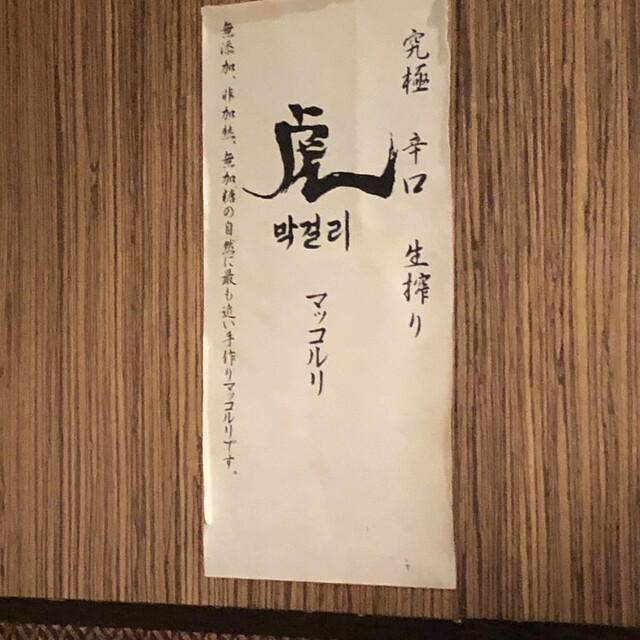 究極 辛口 生搾り
虎
막걸리
マッコルリ
無添加、非加熱、無加糖の自然に最も近い手作りマッコルリです。